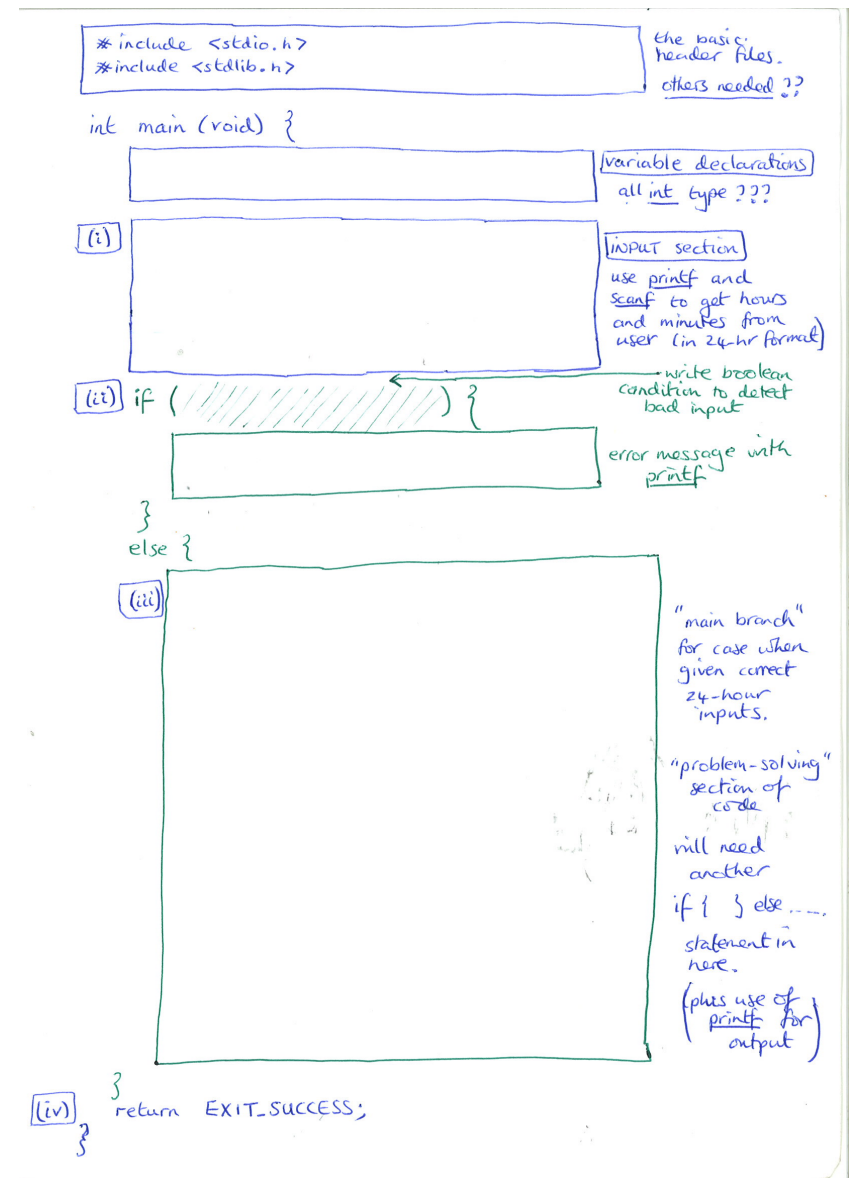 #include <stdio.h>
#include <stdlib.h>
the basic
header files.
others needed ??
int main (void) {
variable declarations
all int type ???
(i)
INPUT section
use printf and
scanf to get hours
and minutes from
user (in 24-hr format)
write boolean
condition to detect
bad input
(ii) if ( ) {
error message with
printf
}
else {
(iii)
"main branch"
for case when
given correct
24-hour
inputs.
"problem-solving"
section of
code
will need
another
if { } else .....
statement in
here.
(plus use of
printf for
output)
}
(iv) return EXIT_SUCCESS;
}